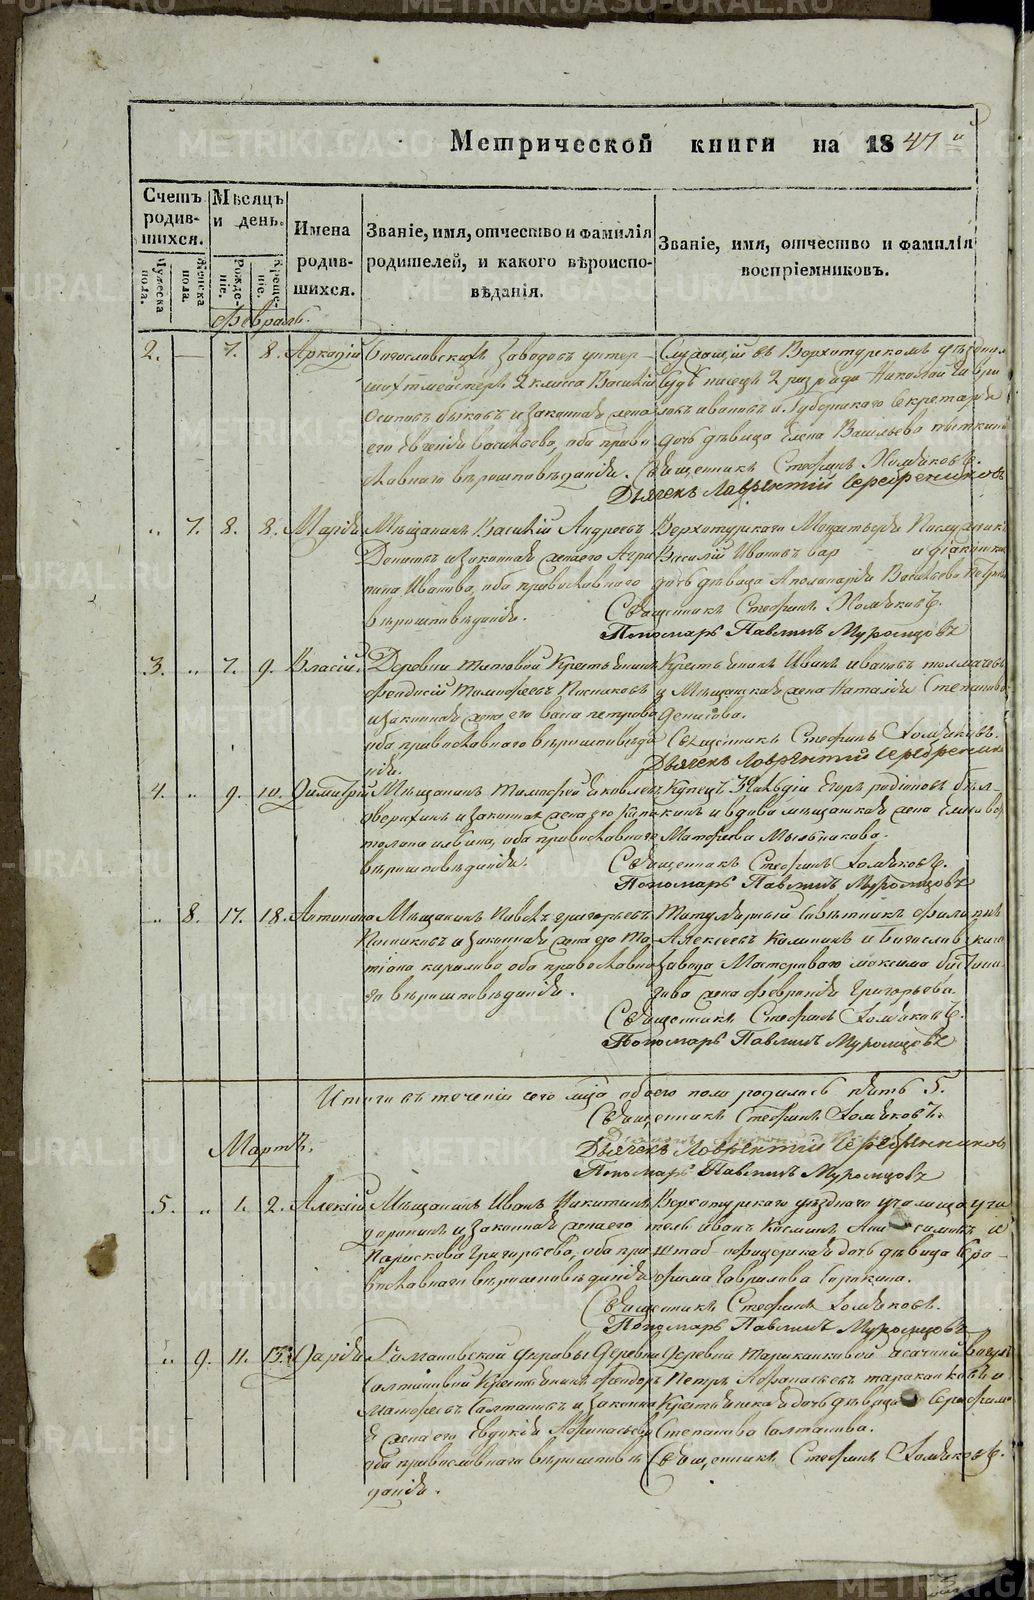 Метрической книги на 1847 й
Счетъ родившихся.
Мѣсяцъ и день.
Имена родившихся.
Званіе, имя, отчество и фамилія родителей, и какого вѣроисповѣданія.
Званіе, имя, отчество и фамилія воспріемниковъ.
Мужеска пола.
Женска пола.
Рожденіе.
Крещеніе.
Февраль.
2. — 7. 8. Аркадій
Богословскихъ заводовъ унтер
шахтмейстеръ 2 класса Василій
Осиповъ Быковъ и законная жена
его Евгенія Васильева, оба право
славнаго вѣроисповѣданія.
Служащій въ Верхотурскомъ уѣздном
судѣ писецъ 2 разряда Николай Гаври
ловъ Ивановъ и Губернскаго Секретаря
дочь дѣвица Елена Васильева
Священникъ Стефанъ Хомяковъ.
Дьячекъ Лаврентій Серебрениковъ
„ 7. 8. 8. Марія
Мѣщанинъ Василій Андреевъ
и законная жена его Агри
пина Иванова, оба православнаго
вѣроисповѣданія.
Верхотурскаго Монастыря Послушникъ
Василій Ивановъ и діаконская
дочь дѣвица Аполинарія Васильева
Священникъ Стефанъ Хомяковъ.
Пономарь Павлинъ Муромцовъ
3. „ 7. 9. Власій
Деревни Крестьянинъ
Феодосій Тимофеевъ Постниковъ
и законная жена его Васса Петрова
оба православнаго вѣроисповѣда
нія.
Крестьянинъ Иванъ Ивановъ Толмачевъ
и Мѣщанская жена Наталія Степанова
Денисова.
Священникъ Стефанъ Хомяковъ.
Дьячекъ Лаврентій Серебрениковъ
4. „ 9. 10. Димитрій
Мѣщанинъ Тимофей Яковлевъ
и законная жена его Капи
толина Ильина, оба православнаго
вѣроисповѣданія.
Купецъ 3 Гильдіи Егоръ Родіоновъ
и вдова мѣщанская жена
Матфеева Мыльникова.
Священникъ Стефанъ Хомяковъ.
Пономарь Павлинъ Муромцовъ
„ 8. 17. 18. Антонина
Мѣщанинъ Павелъ Григорьевъ
Постниковъ и законная жена его Та
тіана Кирилова оба православна
го вѣроисповѣданія.
Титулярный Совѣтникъ Филипъ
Алексеевъ Калининъ и Богословскаго
завода Мастероваго Максима
жена Февронія Григорьева.
Священникъ Стефанъ Хомяковъ.
Пономарь Павлинъ Муромцовъ
Итого въ теченіи сего мѣсяца обоего пола родилось пять 5.
Священникъ Стефанъ Хомяковъ.
Дьячекъ Лаврентій Серебрениковъ
Пономарь Павлинъ Муромцовъ
Мартъ.
5. „ 1. 2. Алексій
Мѣщанинъ Иванъ Никитинъ
и законная жена его
Парасковія Григорьева, оба пра
вославнаго вѣроисповѣданія
Верхотурскаго уѣзднаго училища учи
тель Иванъ Козминъ и
штаб-офицерская дочь дѣвица Сера
фима Гаврилова
Священникъ Стефанъ Хомяковъ.
Пономарь Павлинъ Муромцовъ
„ 9. 11. 13. Дарія
Романовской Управы Деревни
Салтановой Крестьянинъ Феодоръ
Матфеевъ Салтановъ и законна
я жена его Евдокія Афонасьева
оба православнаго вѣроисповѣ
данія.
Деревни Тараканковой казачий
Петръ Афонасьевъ Таракановъ и
Крестьянская дочь дѣвица Серафима
Степанова Салтанова.
Священникъ Стефанъ Хомяковъ.
METRIKI.GASO-URAL.RU